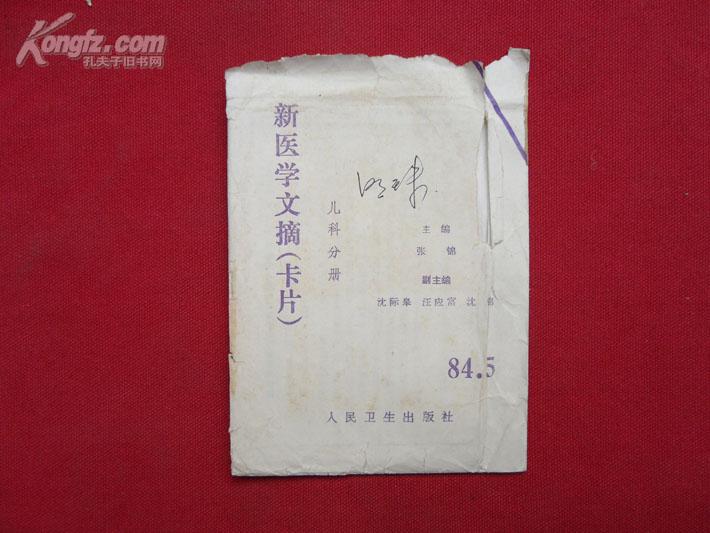 Kongfz.com
孔夫子旧书网
新医学文摘(卡片)
儿科分册
主编
张锦
副主编
沈际皋 汪应富 沈
84.5
人民卫生出版社